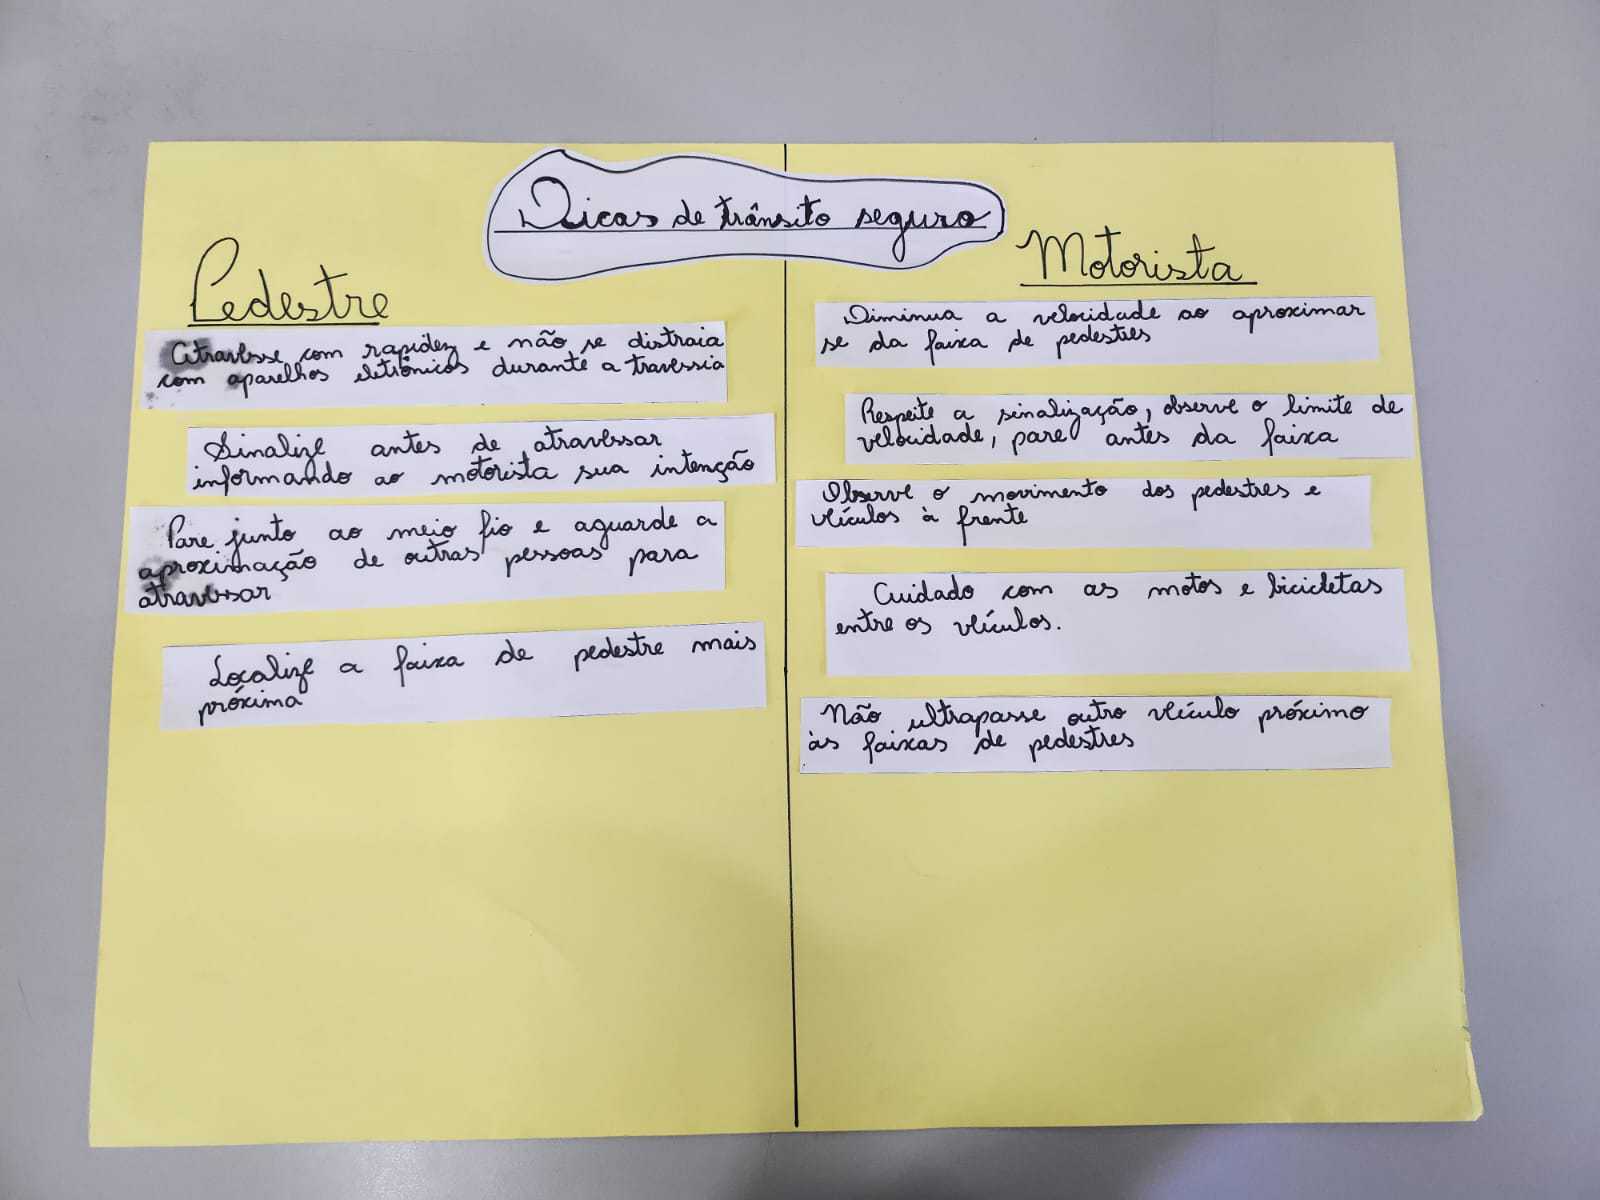 Dicas de trânsito seguro
Pedestre
Atravesse com rapidez e não se distraia
com aparelhos eletrônicos durante a travessia
Sinalize antes de atravessar
informando ao motorista sua intenção
Pare junto ao meio fio e aguarde a
aproximação de outras pessoas para
atravessar
Localize a faixa de pedestre mais
próxima
Motorista
Diminua a velocidade ao aproximar
se da faixa de pedestres
Respeite a sinalização, observe o limite de
velocidade, pare antes da faixa
Observe o movimento dos pedestres e
veículos à frente
Cuidado com as motos e bicicletas
entre os veículos.
Não ultrapasse outro veículo próximo
às faixas de pedestres